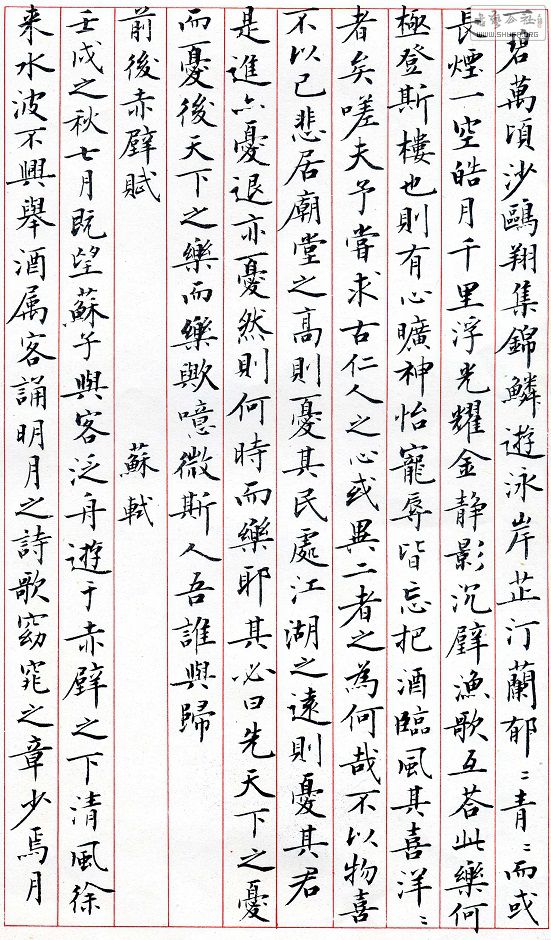 一碧萬頃沙鷗翔集錦鱗遊泳岸芷汀蘭郁〻青〻而或
長煙一空皓月千里浮光耀金静影沉璧漁歌互荅此樂何
極登斯樓也則有心曠神怡寵辱皆忘把酒臨風其喜洋〻
者矣嗟夫予嘗求古仁人之心或異二者之為何哉不以物喜
不以己悲居廟堂之高則憂其民處江湖之遠則憂其君
是進亦憂退亦憂然則何時而樂耶其必曰先天下之憂
而憂後天下之樂而樂歟噫微斯人吾誰與歸
前後赤壁賦 蘇軾
壬戌之秋七月既望蘇子與客泛舟遊于赤壁之下清風徐
来水波不興舉酒属客誦明月之詩歌窈窕之章少焉月